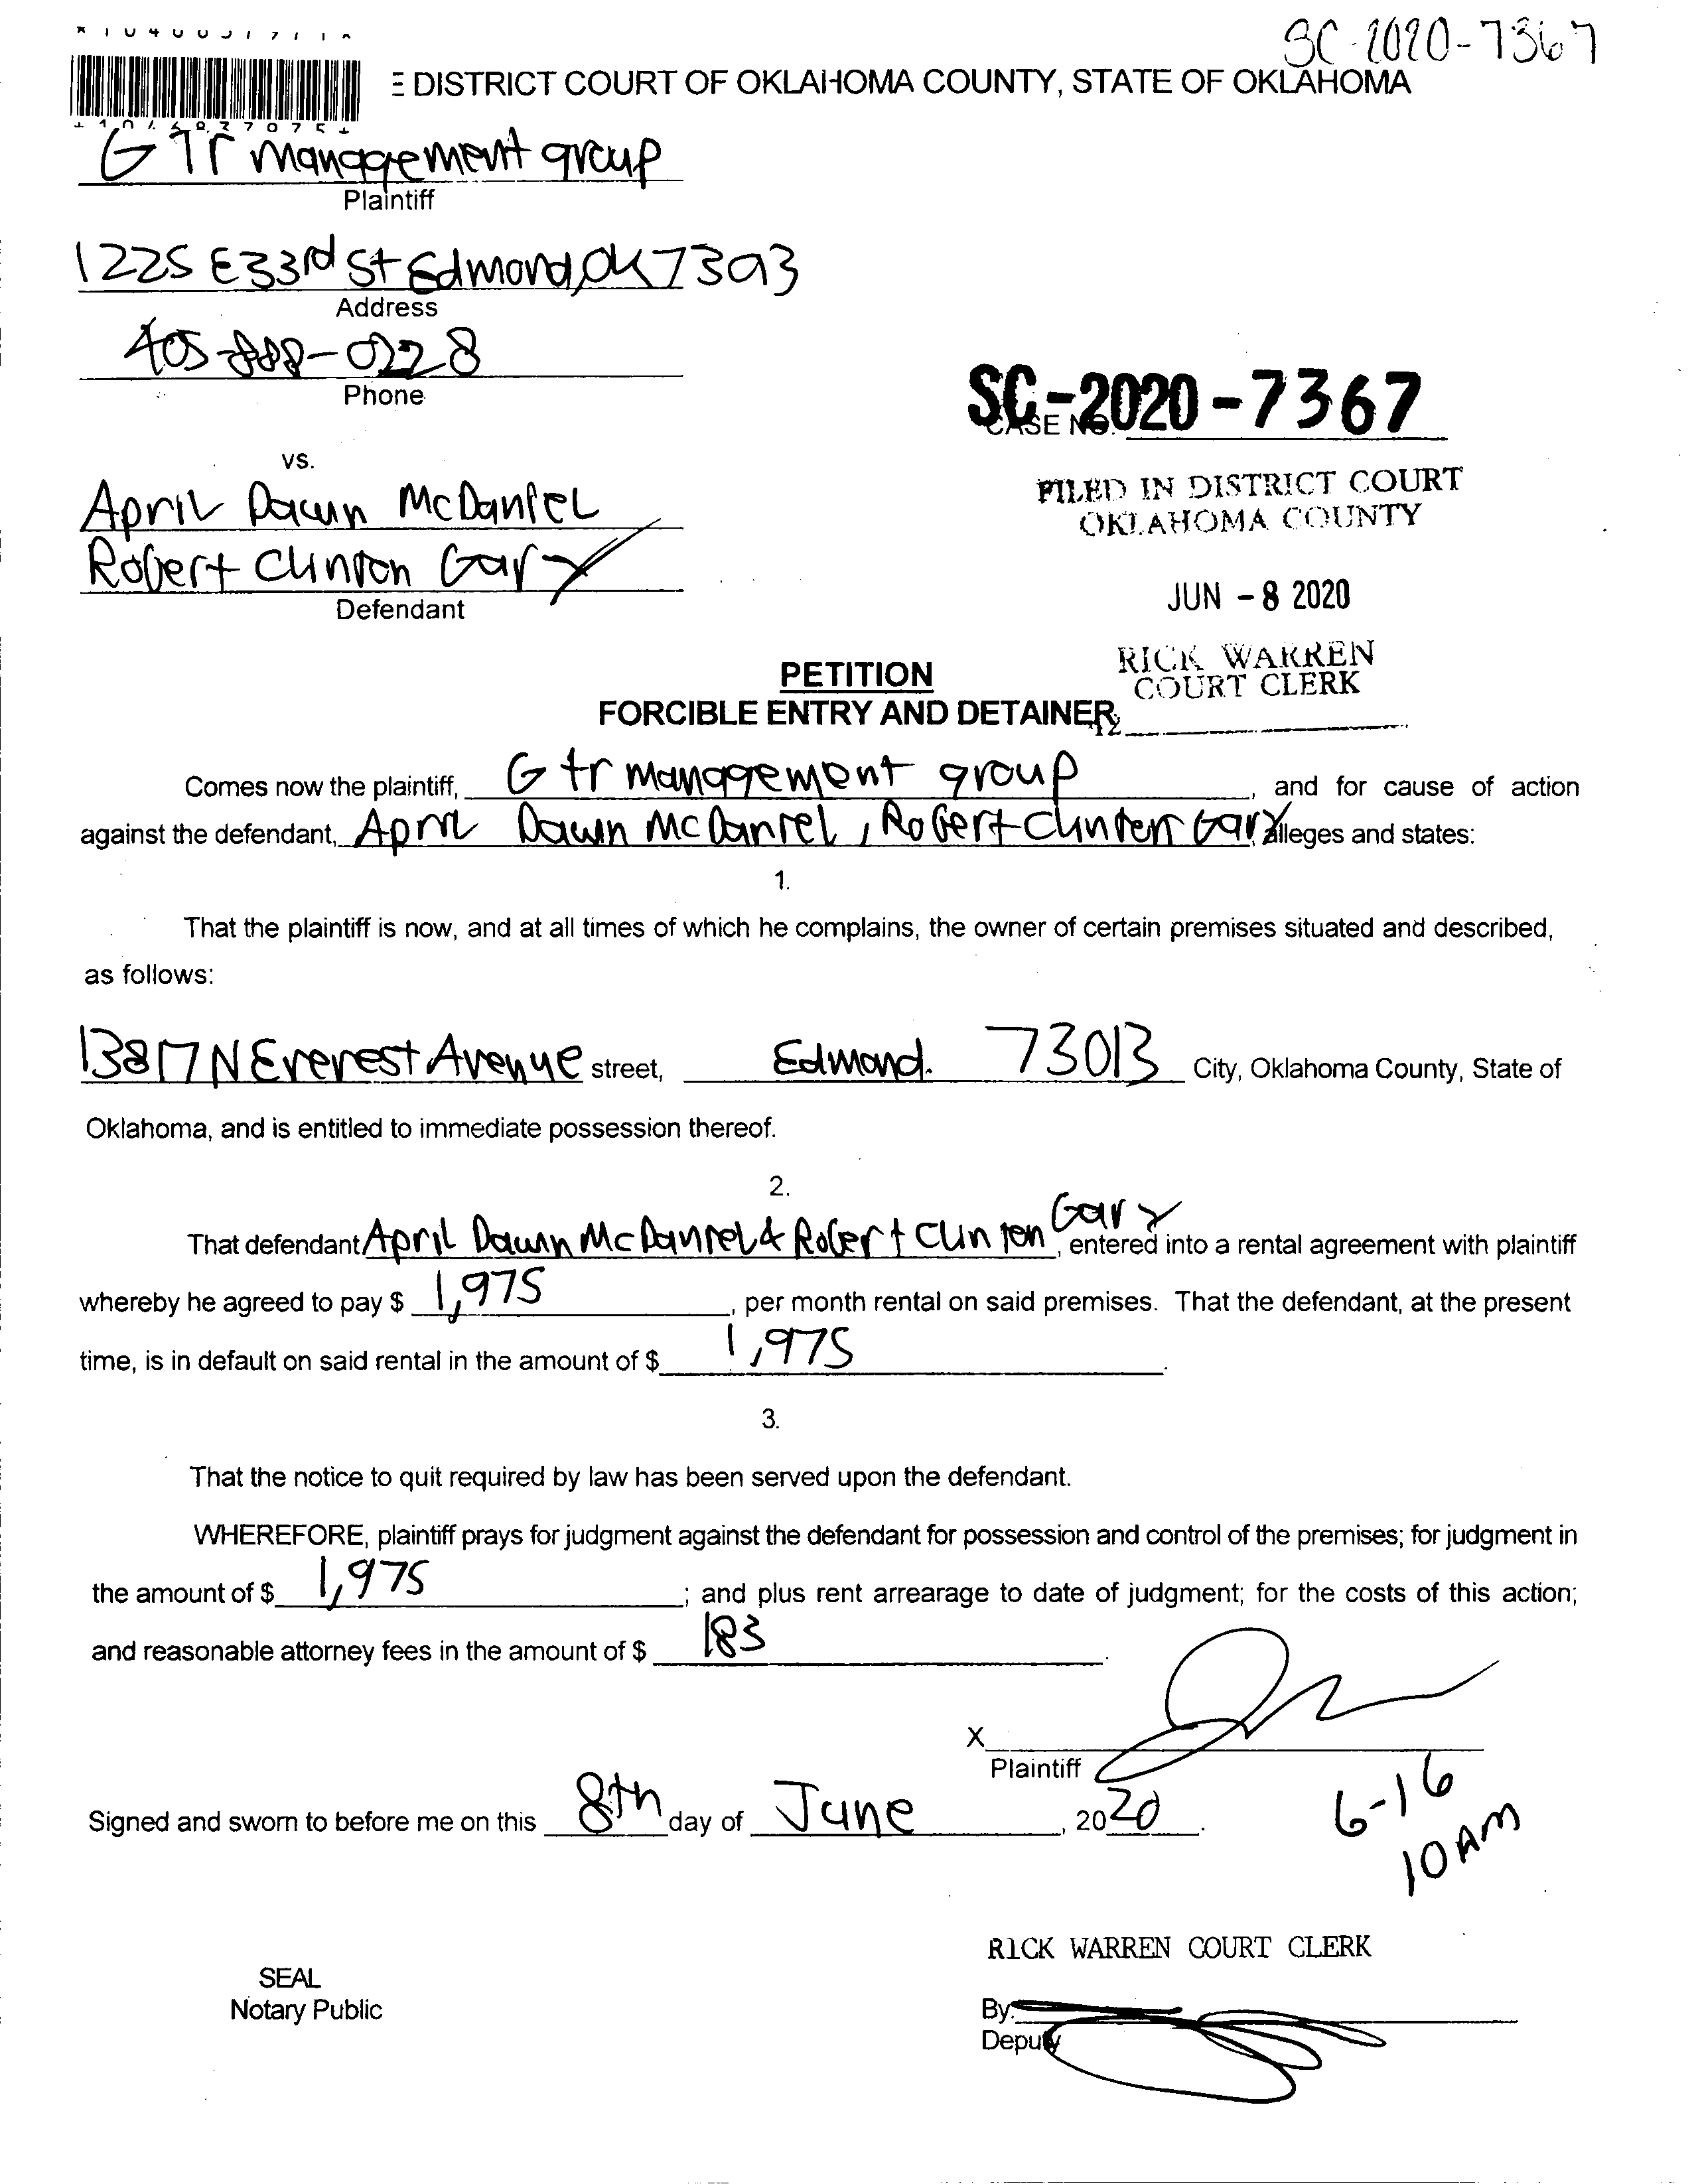 SC-2020-7367
DISTRICT COURT OF OKLAHOMA COUNTY, STATE OF OKLAHOMA
GTr management group
Plaintiff
1225 E33rd St Edmond, OK 73013
Address
405-888-0228
Phone
SC-2020-7367
CASE NO.
vs.
April Dawn McDaniel
Robert Clinton Gary
Defendant
FILED IN DISTRICT COURT
OKLAHOMA COUNTY
JUN - 8 2020
RICK WARREN
COURT CLERK
PETITION
FORCIBLE ENTRY AND DETAINER
Comes now the plaintiff, Gtr management group, and for cause of action
against the defendant, April Dawn McDaniel, Robert Clinton Gary alleges and states:
1.
That the plaintiff is now, and at all times of which he complains, the owner of certain premises situated and described,
as follows:
13817 N Everest Avenue street, Edmond. 73013 City, Oklahoma County, State of
Oklahoma, and is entitled to immediate possession thereof.
2.
That defendant April Dawn McDaniel & Robert Clinton Gary, entered into a rental agreement with plaintiff
whereby he agreed to pay $ 1,975, per month rental on said premises. That the defendant, at the present
time, is in default on said rental in the amount of $ 1,975.
3.
That the notice to quit required by law has been served upon the defendant.
WHEREFORE, plaintiff prays for judgment against the defendant for possession and control of the premises; for judgment in
the amount of $ 1,975; and plus rent arrearage to date of judgment; for the costs of this action;
and reasonable attorney fees in the amount of $ 183.
X
Plaintiff
Signed and sworn to before me on this 8th day of June, 2020.
6-16
10 AM
RICK WARREN COURT CLERK
SEAL
Notary Public
By:
Deputy